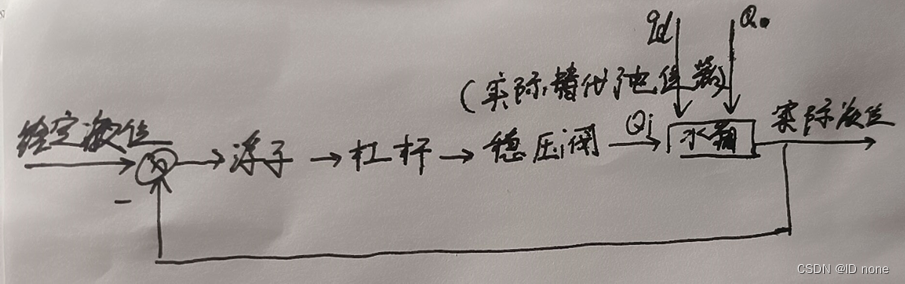 qd
Qo
(实际替代电位器)
给定液位
浮子
杠杆
稳压阀
Qi
水箱
实际液位
-
CSDN @ID none